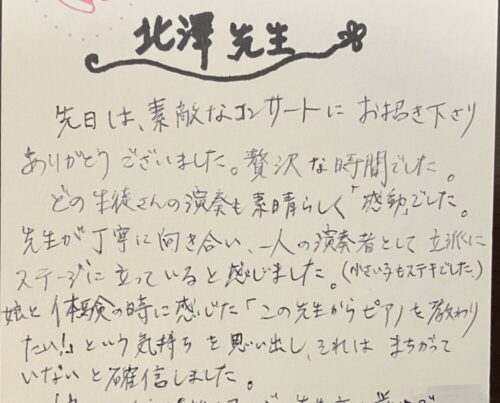 北澤先生
先日は、素敵なコンサートにお招き下さり
ありがとうございました。贅沢な時間でした。
どの生徒さんの演奏も素晴らしく「感動」でした。
先生が丁寧に向き合い、一人の演奏者として立派に
ステージに立っていると感じました。(小さい子もステキでした)
娘と体験の時に感じた「この先生からピアノを教わり
たい!」という気持ちを思い出し、それはまちがって
いないと確信しました。